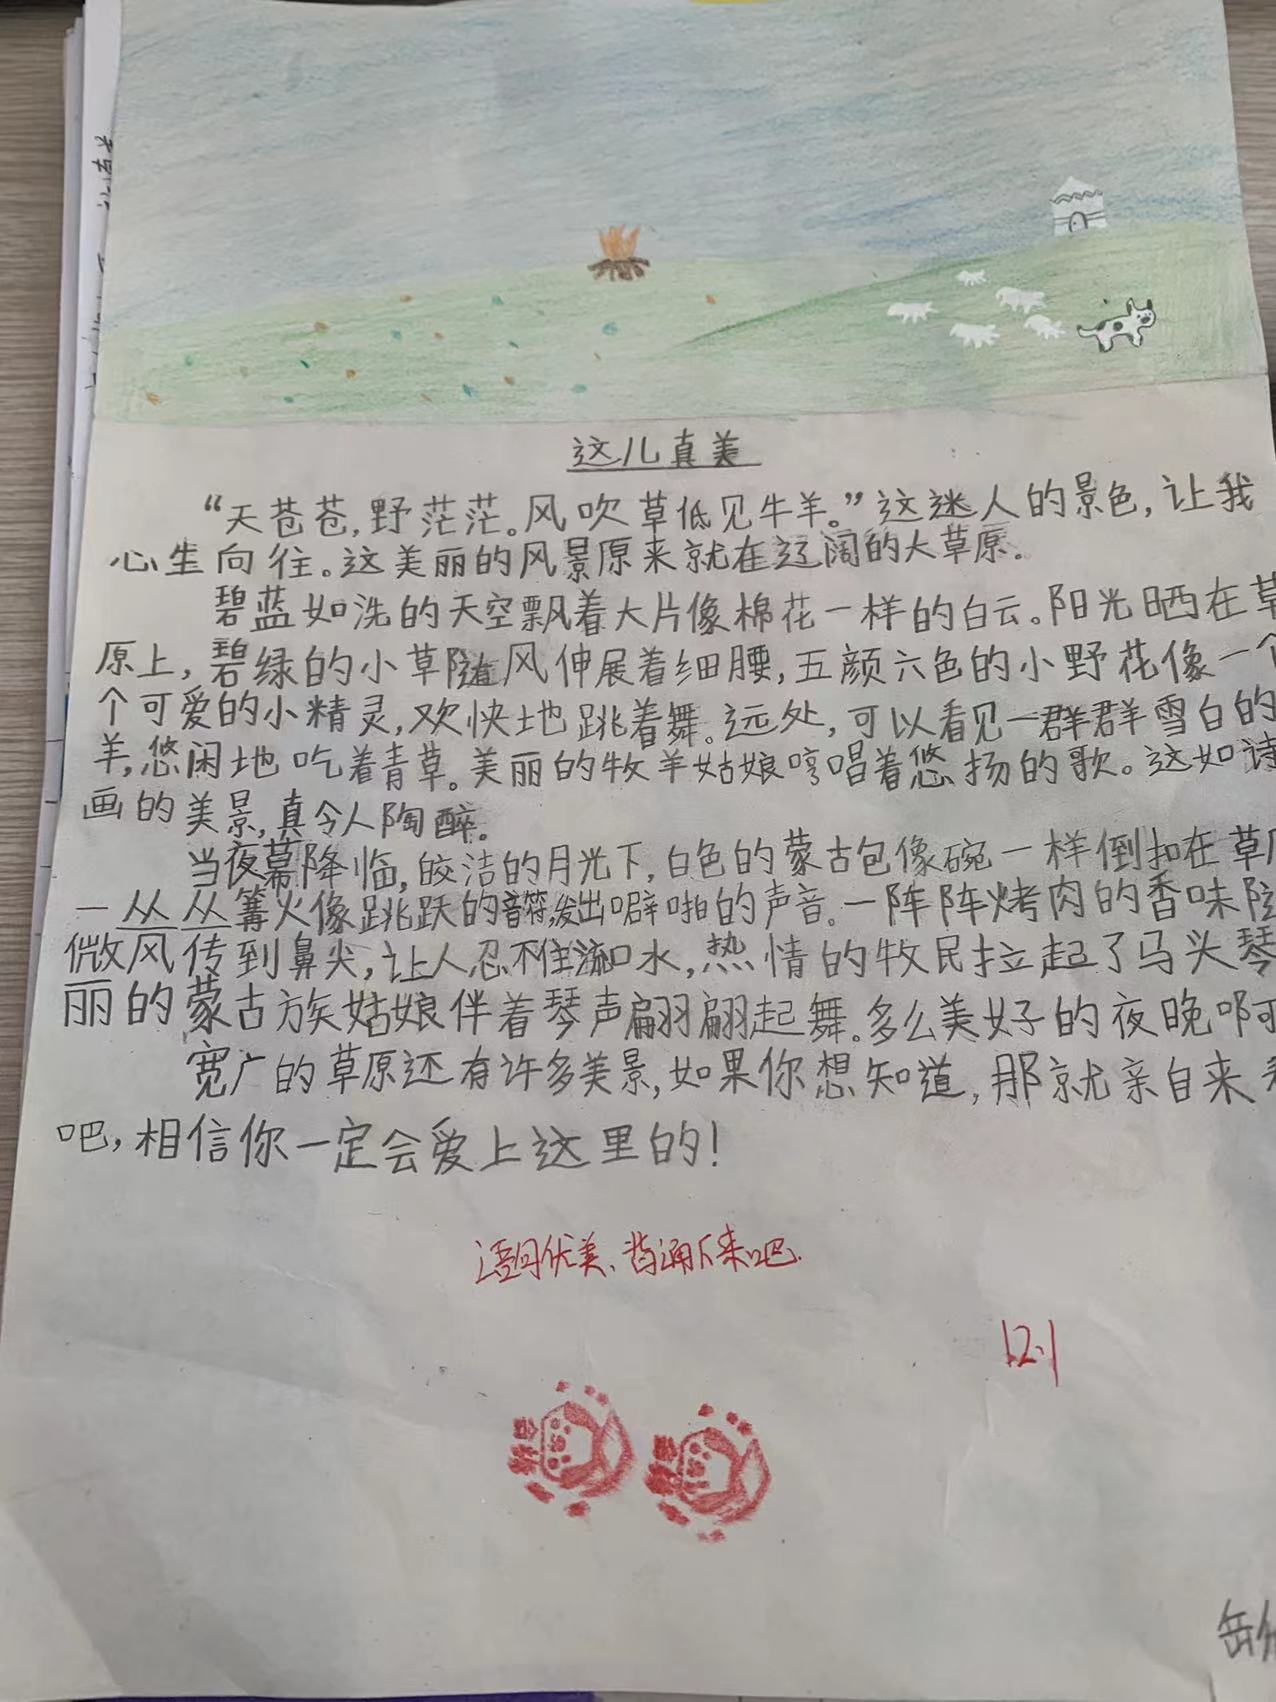 这儿真美
“天苍苍，野茫茫。风吹草低见牛羊。”这迷人的景色，让我
心生向往。这美丽的风景原来就在辽阔的大草原。
碧蓝如洗的天空飘着大片像棉花一样的白云。阳光晒在草
原上，碧绿的小草随风伸展着细腰，五颜六色的小野花像一个
个可爱的小精灵，欢快地跳着舞。远处，可以看见一群群雪白的
羊，悠闲地吃着青草。美丽的牧羊姑娘哼唱着悠扬的歌。这如诗
画的美景，真令人陶醉。
当夜幕降临，皎洁的月光下，白色的蒙古包像碗一样倒扣在草原
一丛丛篝火像跳跃的音符，发出噼啪的声音。一阵阵烤肉的香味随
微风传到鼻尖，让人忍不住流口水，热情的牧民拉起了马头琴
丽的蒙古族姑娘伴着琴声翩翩起舞。多么美好的夜晚啊
宽广的草原还有许多美景，如果你想知道，那就亲自来
吧，相信你一定会爱上这里的！
语句优美、背诵下来吧.
12.1
岳